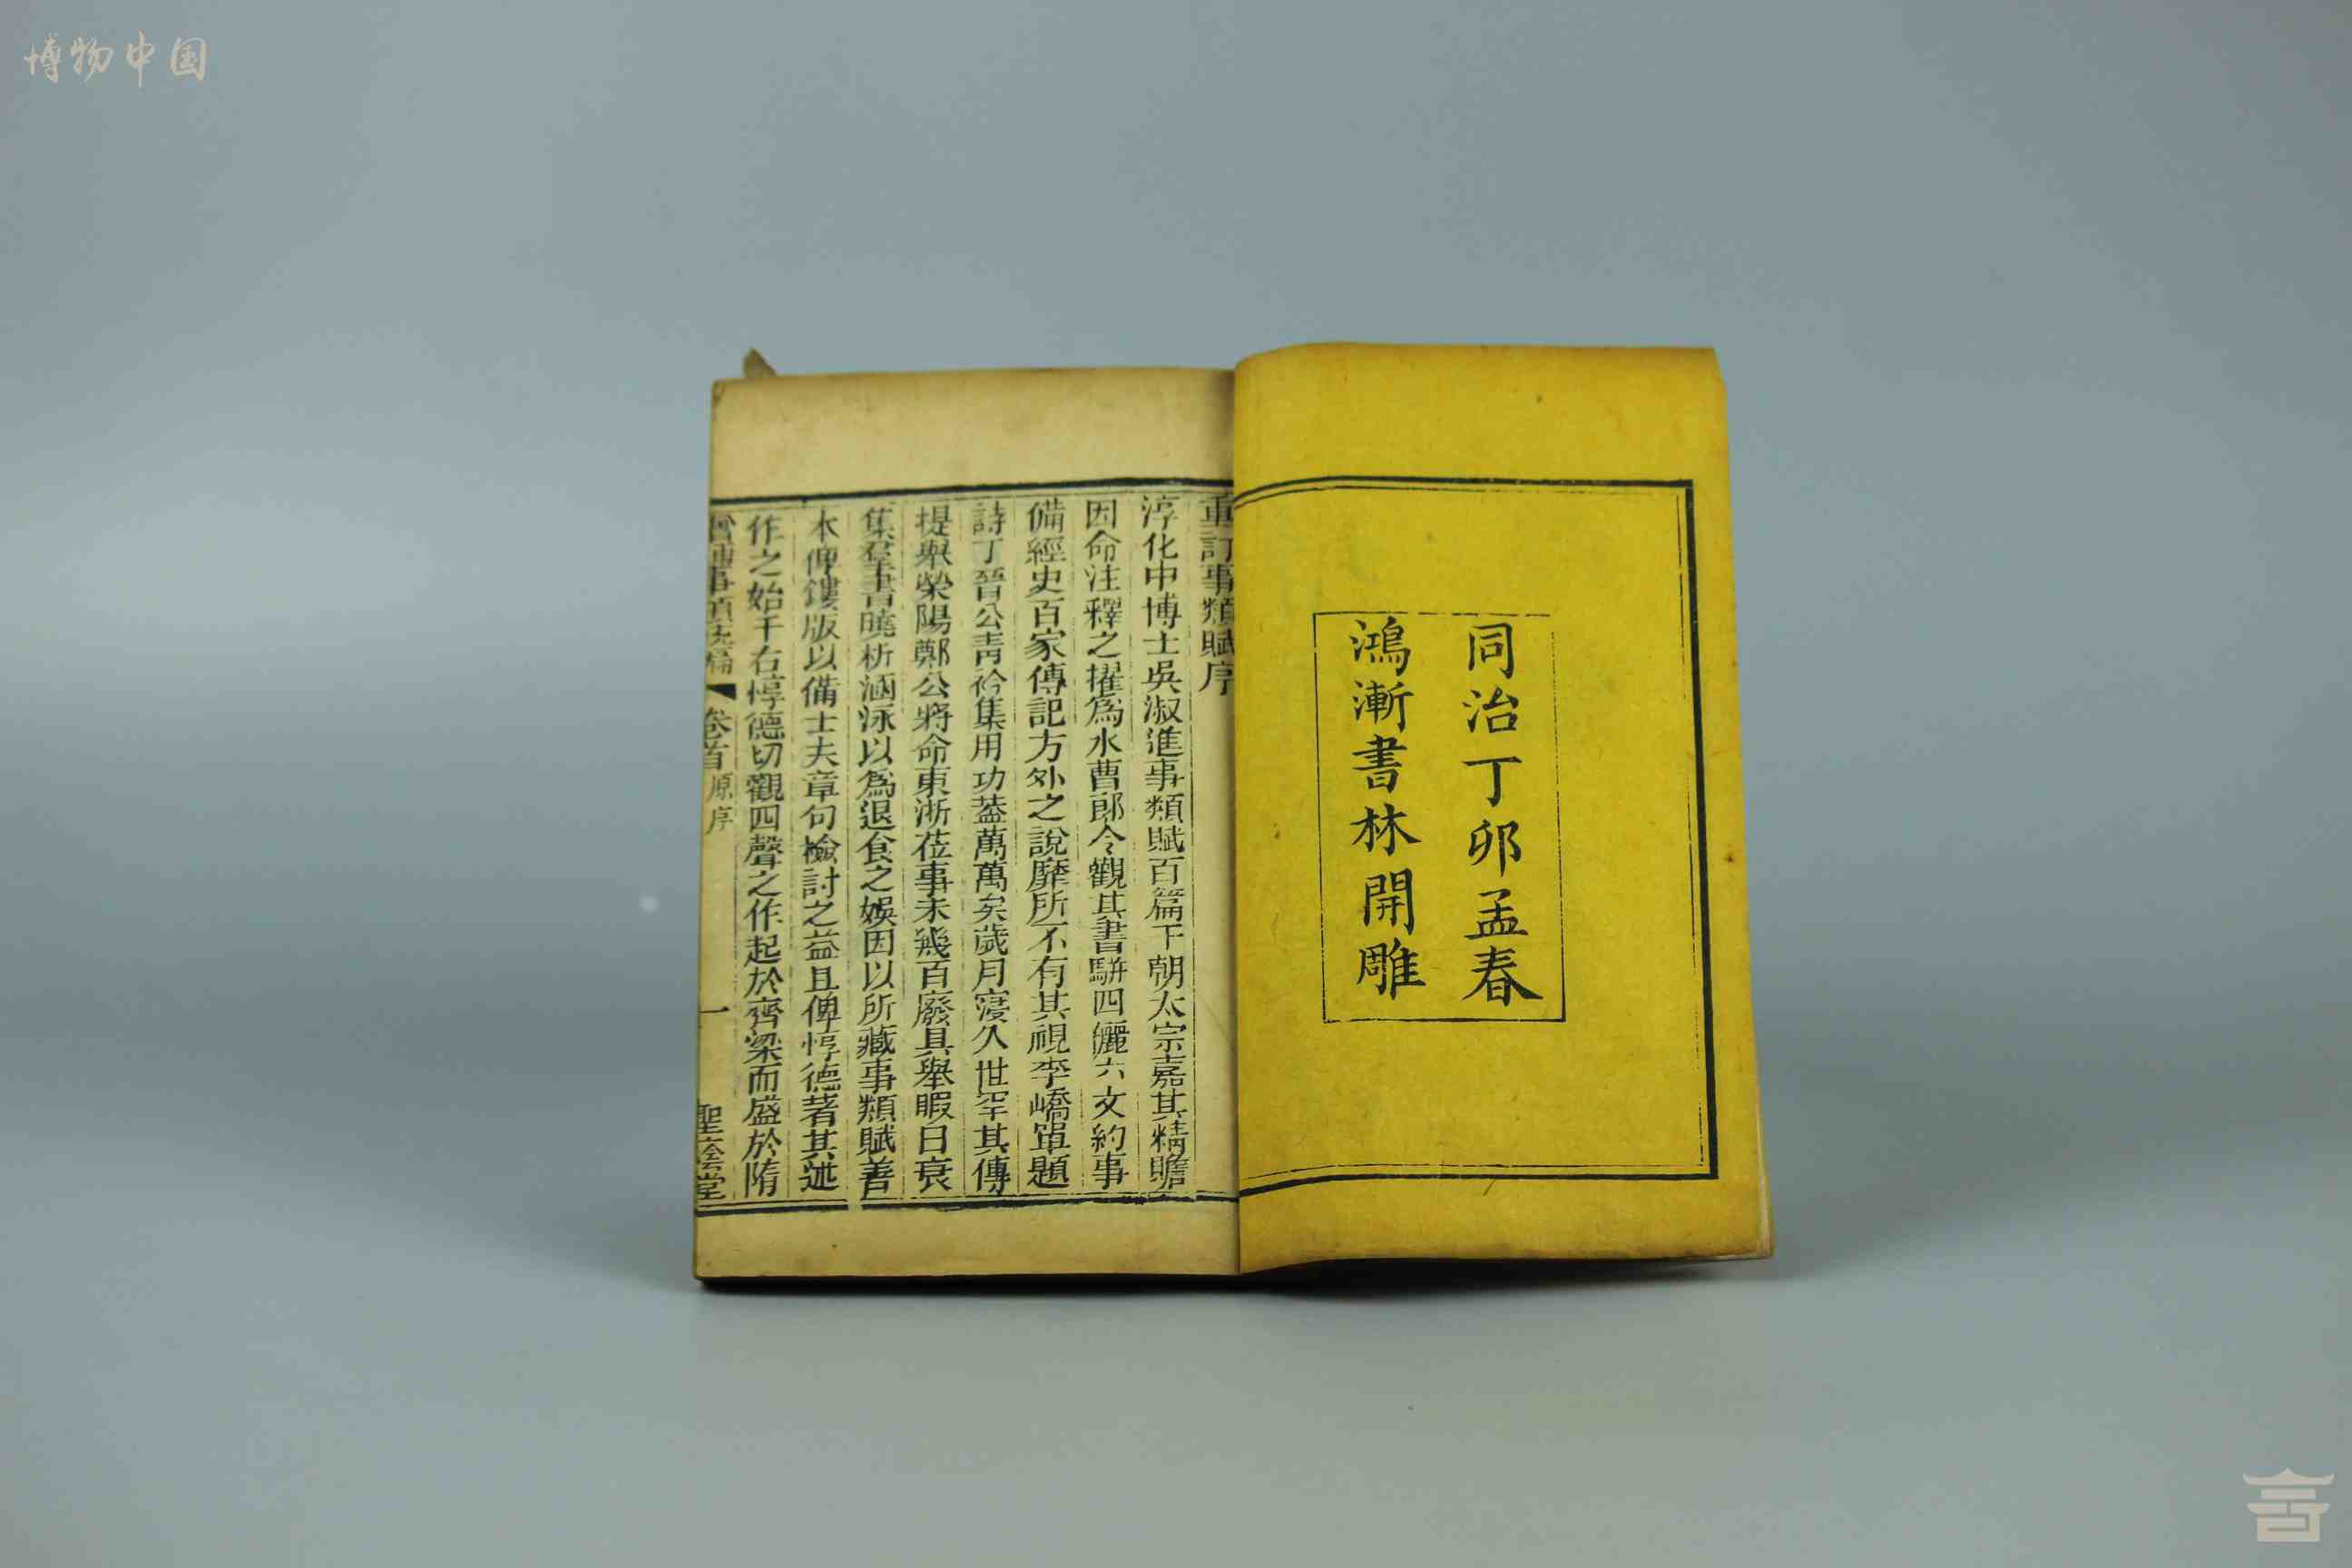 博物中国
同治丁卯孟春
鴻漸書林開雕
重訂事類賦序
淳化中博士吳淑進事類賦百篇下朝太宗嘉其精贍
因命注釋之擢為水曹郎今觀其書駢四儷六文約事
備經史百家傳記方外之說靡所不有其視李嶠單題
詩丁晉公青衿集用功葢萬萬矣歲月寖久世罕其傳
提舉榮陽鄭公將命東浙莅事未幾百廢具舉暇日裒
集羣書曉析涵泳以爲退食之娛因以所藏事類賦善
本俾鏤版以備士夫章句檢討之益且俾惇德著其述
作之始于右惇德切觀四聲之作起於齊梁而盛於隋
卷首 原序 一 聖蔭堂